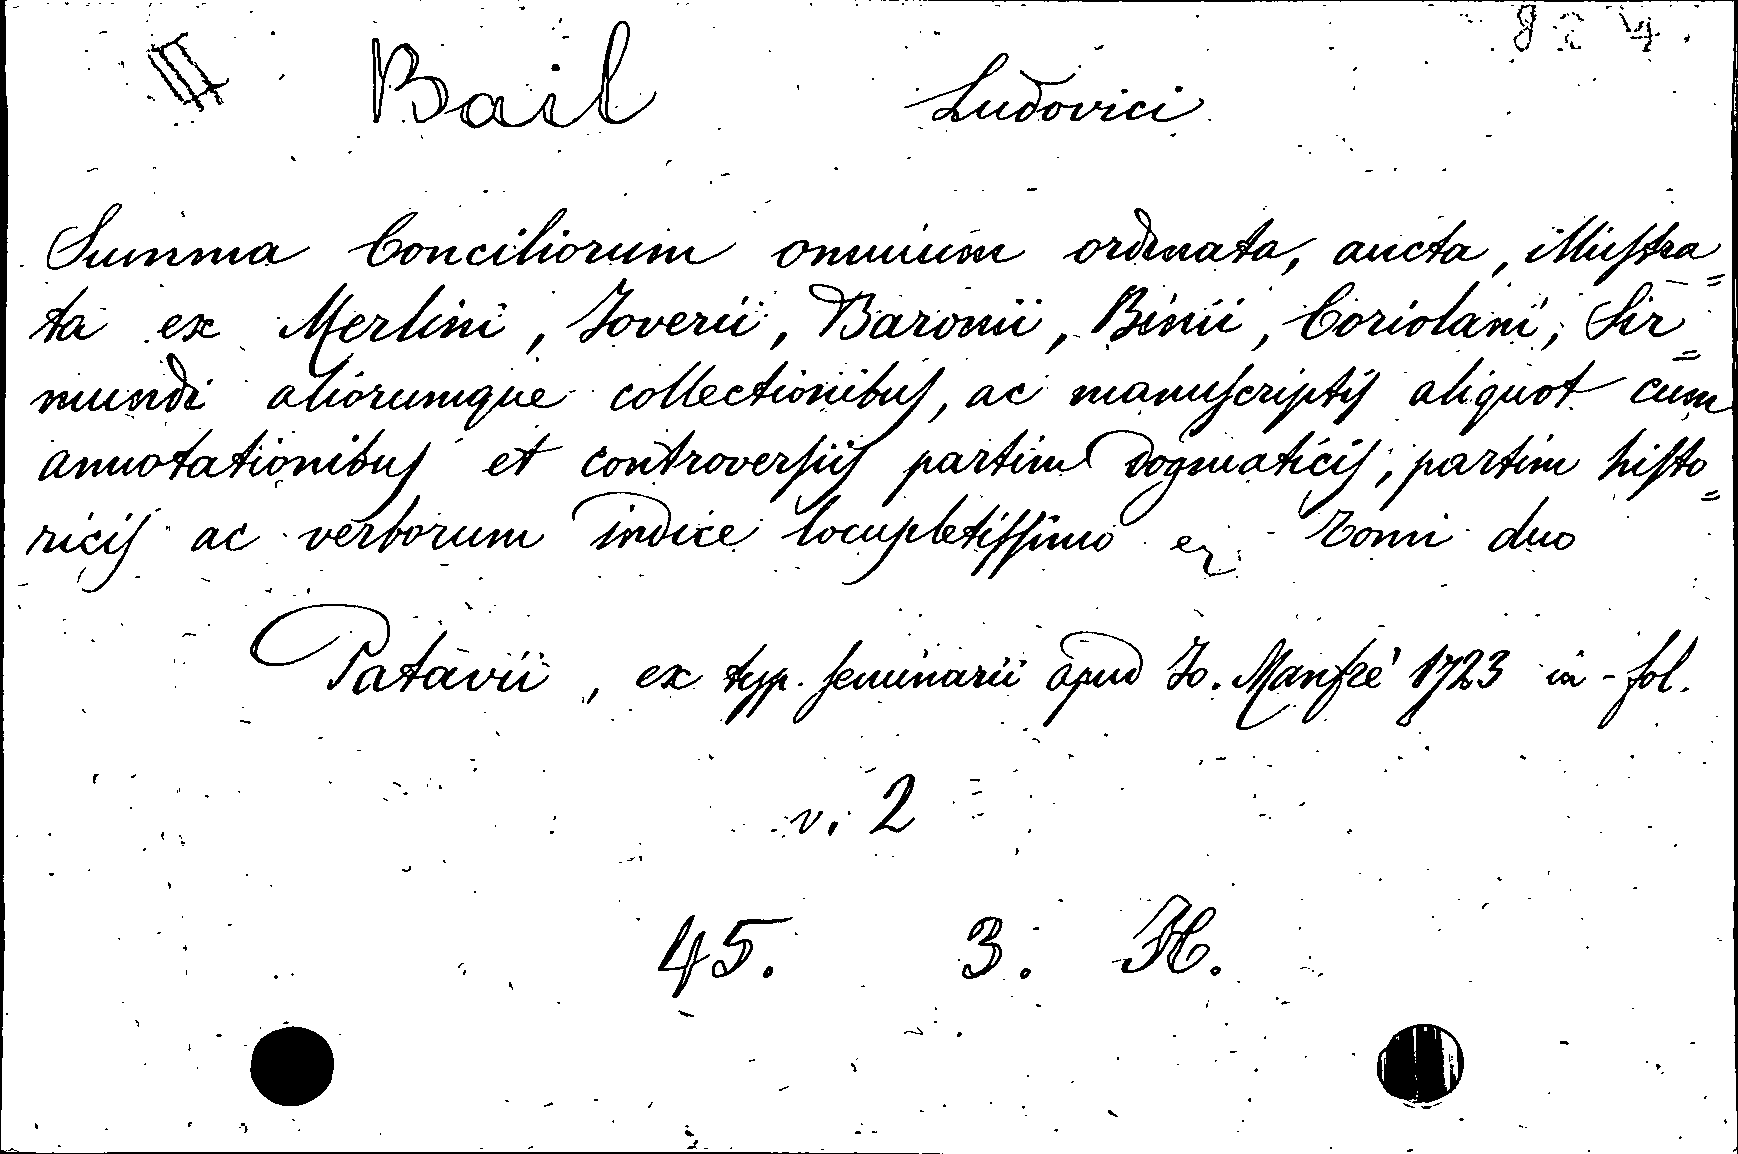 824.
Bail Ludovici
Summa Conciliorum omnium ordinata, aucta, illustra=
ta ex Merlini, Joverii, Baronii, Binii, Coriolani, Sir=
mundi aliorumque collectionibus, ac manuscriptis aliquot cum
annotationibus et controversiis partim dogmaticis, partim histo=
ricis ac verborum indice locupletissimo Tomi duo
Patavii, ex typ. seminarii apud Jo. Manfrè 1723 in-fol.
v. 2
45. 3. H.